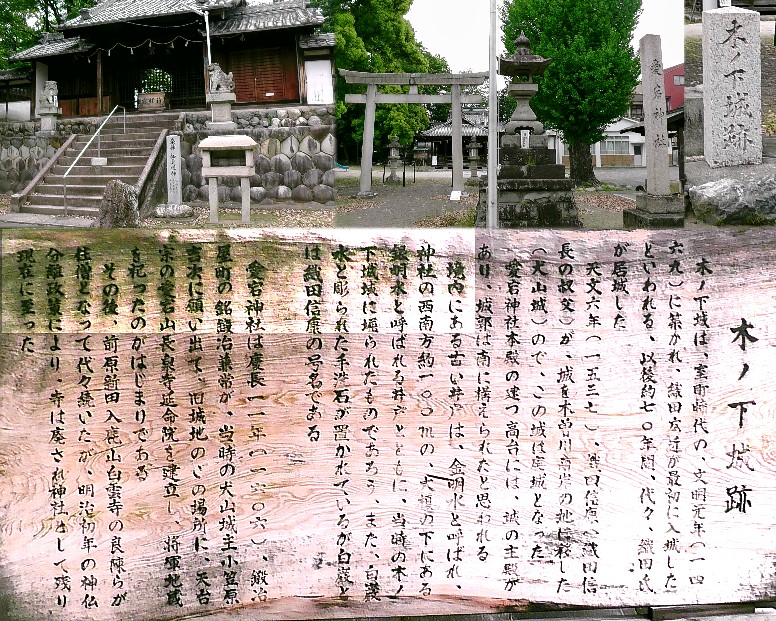 木ノ下城跡
愛宕神社
木ノ下城跡
木ノ下城は、室町時代の、文明元年(一四
六九)に築かれ、織田広近が最初に入城した
といわれる、以後約七〇年間、代々、織田氏
が居城した
天文六年(一五三七)、織田信康(織田信
長の叔父)が、城を木曽川南岸の地に移した
(犬山城)ので、この城は廃城となった
愛宕神社本殿の建つ高台には、城の主郭が
あり、城郭は南に構えられたと思われる
境内にある古い井戸は、金明水と呼ばれ、
神社の西南方約一〇〇mの、大榎の下にある
銀明水と呼ばれる井戸とともに、当時の木ノ
下城域に堀られたものであろう、また、白巌
水と彫られた手洗石が置かれているが白巌と
は織田信康の号名である
愛宕神社は慶長一一年(一六〇六)、鍛冶
屋町の銘鍛冶兼常が、当時の犬山城主小笠原
吉次に願い出て、旧城地のこの場所に、天台
宗の愛宕山長泉寺延命院を建立し、将軍地蔵
を祀ったのがはじまりである
その後、前原新田入鹿山白雲寺の良陳らが
住僧となって代々続いたが、明治初年の神仏
分離政策により、寺は廃され神社として残り
現在に至った